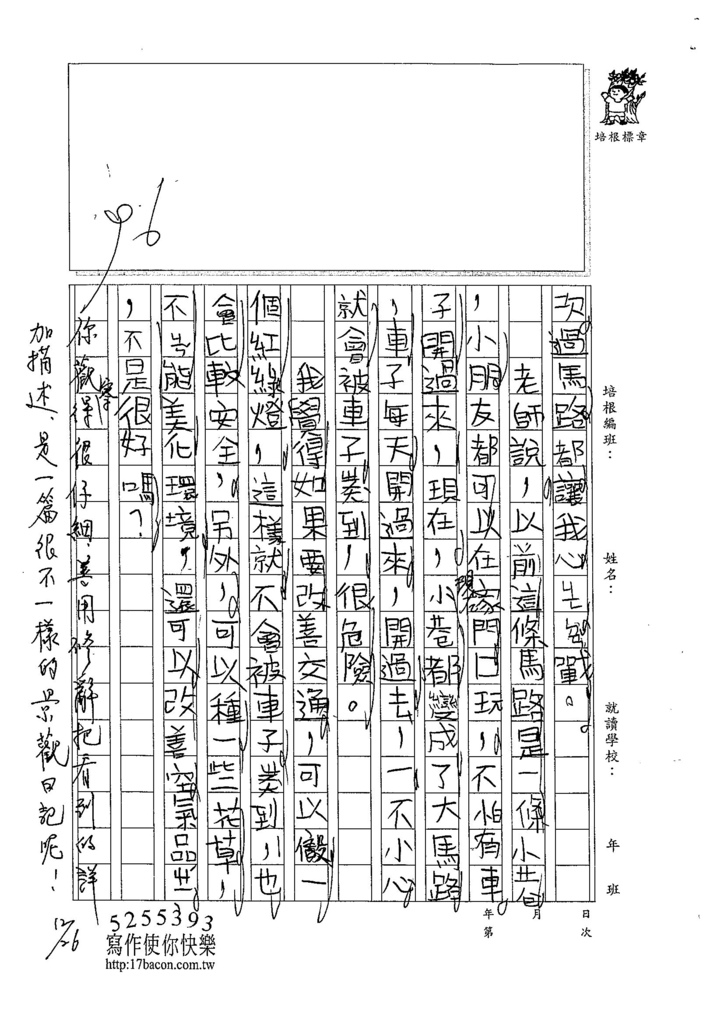 培根標章
培根編班：
姓名：
就讀學校：
年
班
年
月
日
第
次
次過馬路都讓我心生怠戰。
老師說，以前這條馬路是一條小巷
，小朋友都可以在家門口玩，不怕有車
子開過來，現在，小巷都變成了大馬路
，車子每天開過來，開過去，一不小心
就會被車子撞到，很危險。
我覺得如果要改善交通，可以設一
個紅綠燈，這樣就不會被車子撞到，也
會比較安全，另外，可以種一些花草，
不但能美化環境，還可以改善空氣品質
，不是很好嗎？
你觀察得很仔細，善用修辭把看到的詳
加描述，是一篇很不一樣的景觀日記呢！
96
12/26
5255393
寫作使你快樂
http:17bacon.com.tw